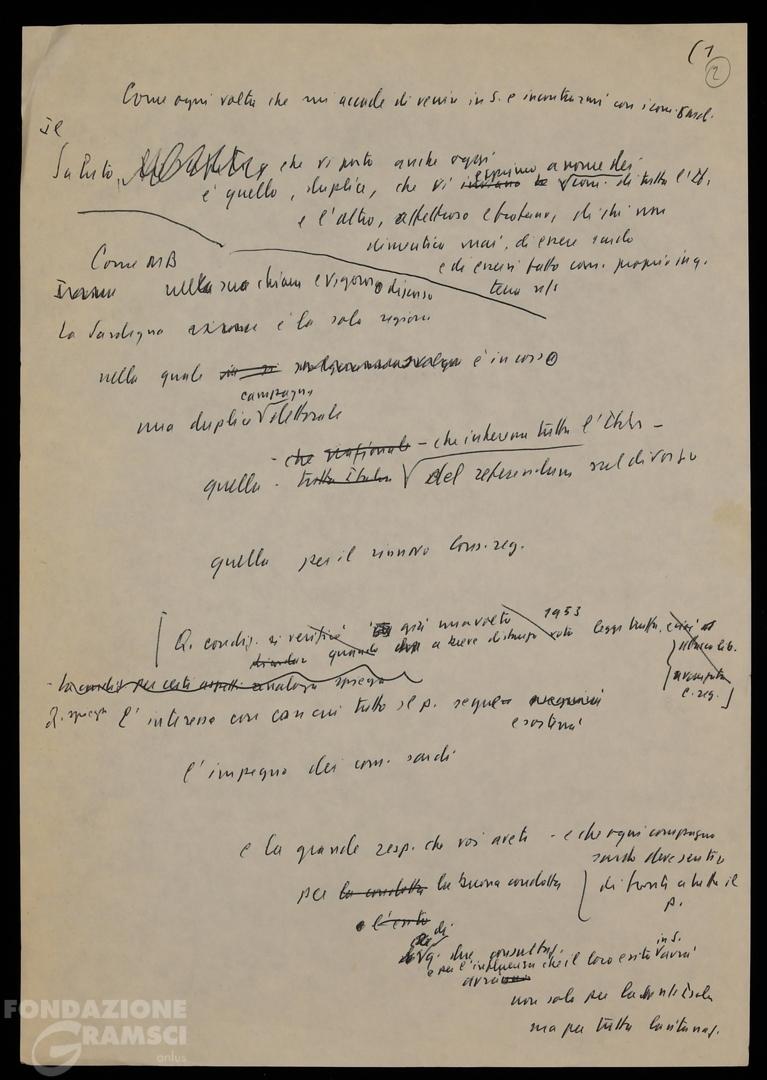 (1
2
Come ogni volta che mi accade di venire in S. e incontrarmi con i com. sardi.
Il
Saluto, che vi porto anche oggi
è quello, duplice, che vi esprimo a nome dei com. di tutta l'It.
e l'altro, affettuoso e fraterno, di chi non
dimentica mai, di essere sardo
e di essersi fatto com. proprio in q.
terra
Come MB
nella sua chiaro e vigoroso discorso
La Sardegna è la sola regione
nella quale è in corso
una duplice campagna elettorale
- che nazionale - che interessa tutta l'Italia -
quella - tutta Italia del referendum sul divorzio
quella per il rinnovo Cons. reg.
Q. condiz. si verificò già una volta 1953
quando a breve distanza voto legge truffa,
e. reg. ]
- La condiz per certi aspetti analoga spiega
Q. spiega l'interesse con cui tutto il p. segue
e sostiene
l'impegno dei com. sardi
e la grande resp. che voi avete - e che ogni compagno
sardo deve sentire
per la condotta la buona condotta di fronte a tutto il
p.
e l'esito
di q. due consultaz.
e per l'influenza che il loro esito in S. avrà
non solo per la
ma per tutta la vita naz.
FONDAZIONE
GRAMSCI
onlus